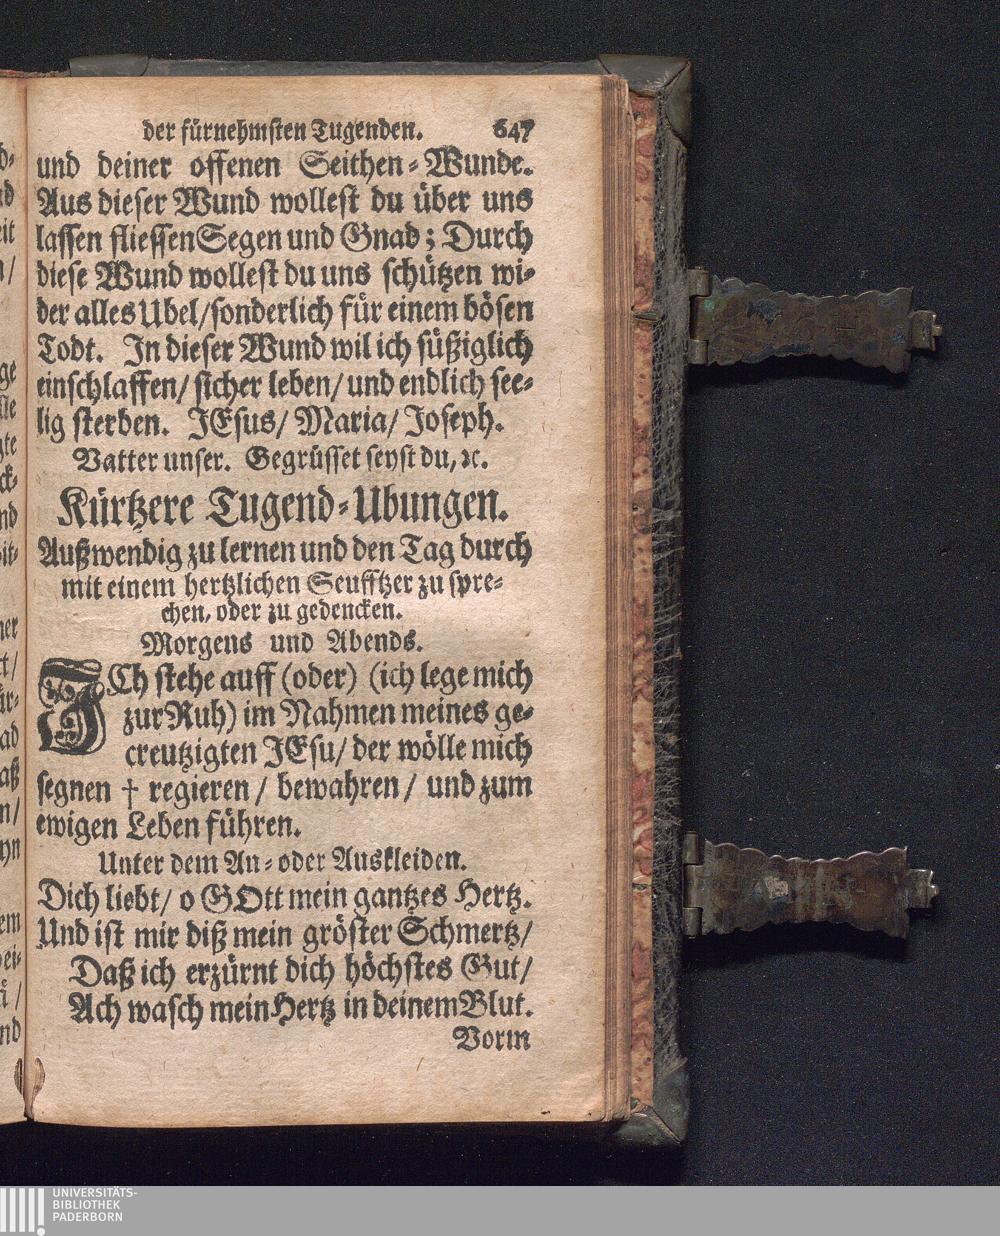 der fürnehmsten Tugenden. 647
und deiner offenen Seithen-Wunde.
Aus dieser Wund wollest du über uns
lassen fliessen Segen und Gnad; Durch
diese Wund wollest du uns schützen wi-
der alles Ubel/sonderlich für einem bösen
Todt. In dieser Wund wil ich süßiglich
einschlaffen/ sicher leben/ und endlich see-
lig sterben. JEsus/ Maria/ Joseph.
Vatter unser. Gegrüsset seyst du, ꝛc.
Kürtzere Tugend-Ubungen.
Außwendig zu lernen und den Tag durch
mit einem hertzlichen Seufftzer zu spre-
chen, oder zu gedencken.
Morgens und Abends.
ICh stehe auff (oder) (ich lege mich
zur Ruh) im Nahmen meines ge-
creutzigten JEsu/ der wölle mich
segnen † regieren / bewahren / und zum
ewigen Leben führen.
Unter dem An- oder Auskleiden.
Dich liebt/ o GOtt mein gantzes Hertz.
Und ist mir diß mein gröster Schmertz/
Daß ich erzürnt dich höchstes Gut/
Ach wasch mein Hertz in deinem Blut.
Vorm
UNIVERSITÄTS-
BIBLIOTHEK
PADERBORN